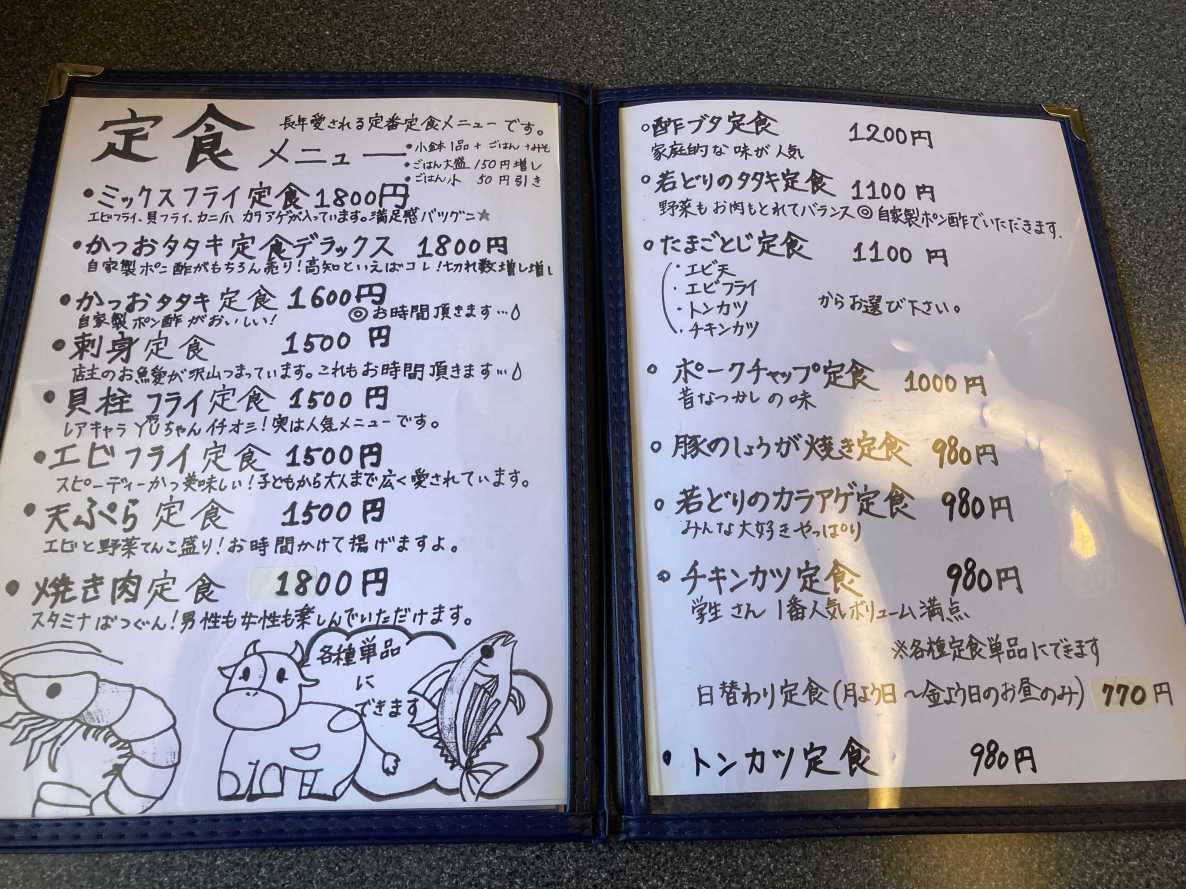 定食メニュー
長年愛される定番定食メニューです。
・小鉢1品+ごはん+みそ
・ごはん大盛 150円増し
・ごはん小 50円引き
・ミックスフライ定食 1800円
エビフライ、貝フライ、カニ爪 カラアゲが入っています。満足感バツグン☆
・かつおタタキ定食デラックス 1800円
自家製ポン酢がもちろん売り!高知といえばコレ!切れ数増し増し
・かつおタタキ定食 1600円
自家製ポン酢がおいしい! ◎お時間頂きます…
・刺身定食 1500円
店主のお魚愛が沢山つまっています。これもお時間頂きます…
・貝柱フライ定食 1500円
レアキャラ YUちゃんイチオシ!実は人気メニューです。
・エビフライ定食 1500円
スピーディーかつ美味しい!子どもから大人まで広く愛されています。
・天ぷら定食 1500円
エビと野菜てんこ盛り!お時間かけて揚げますよ。
・焼き肉定食 1800円
スタミナばつぐん!男性も女性も楽しんでいただけます。
各種単品
に
できます
○酢ブタ定食 1200円
家庭的な味が人気
○若どりのタタキ定食 1100円
野菜もお肉もとれてバランス◎自家製ポン酢でいただきます.
○たまごとじ定食 1100円
・エビ天
・エビフライ
・トンカツ からお選び下さい。
・チキンカツ
○ポークチャップ定食 1000円
昔なつかしの味
○豚のしょうが焼き定食 980円
○若どりのカラアゲ定食 980円
みんな大好きやっぱり
○チキンカツ定食 980円
学生さん1番人気ボリューム満点
※各種定食単品にできます
日替わり定食(月よう日〜金よう日のお昼のみ) 770円
・トンカツ定食 980円